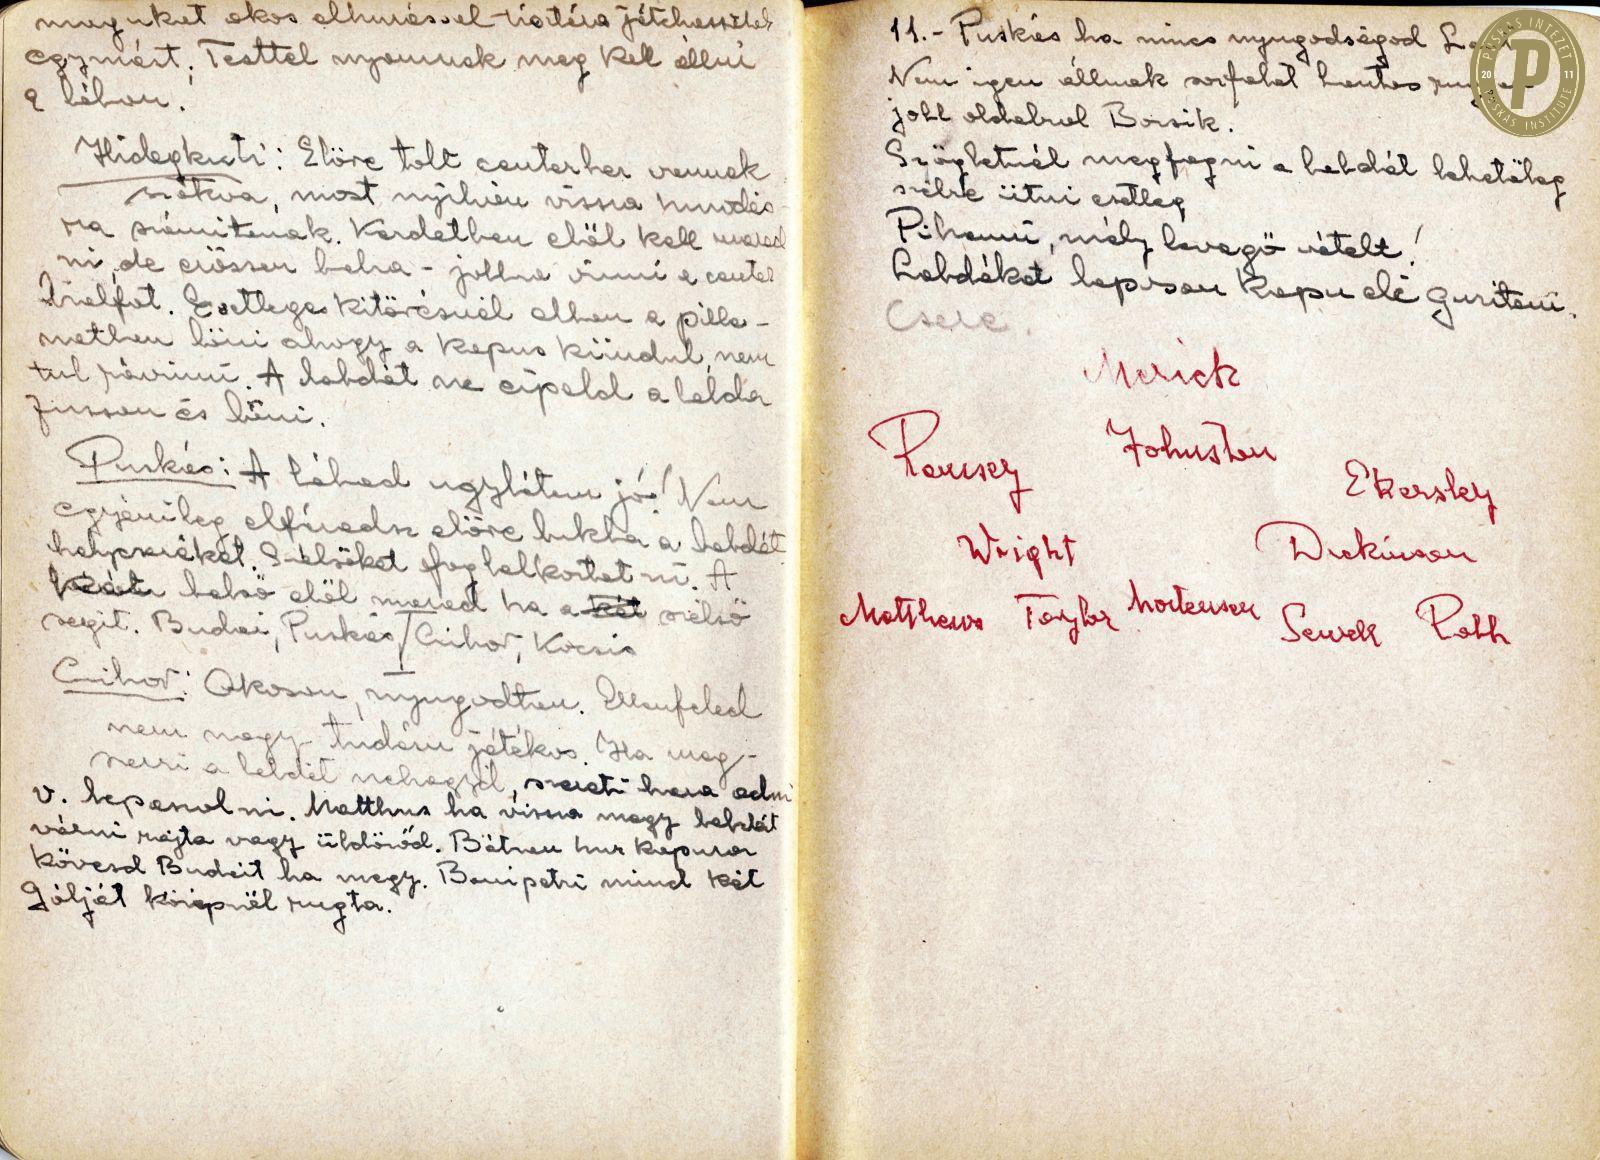 maguket okos elhuzással tisztára játszhassátok
egymást. Testtel nyomnak meg kell állni
a lábon.
Hidegkuti: Előre tolt centerhez vannak
szokva, most nyilván vissza huzódás-
ra számitanak. Kezdetben elől kell marad
ni, de erőssen balra - jobbra vinni a center
hielfot. Esetleges kitörésnél abban a pilla-
natban lőni ahogy a kapus kiindul, nem
tul rávinni. A labdát ne cipeld a labda
fusson és lőni.
Puskás: A lábad ugylátom jó! Nem
egyénileg elfáradsz előre bukba a labdát
helycseréket. Szélsőket foglalkoztatni. A
belső elől marad ha a két szélső
segit. Budai, Puskás / Czibor, Kocsis
Czibor: Okosan, nyugodtan. Ellenfeled
nem nagy tudásu játékos. Ha meg-
szerzi a labdát nehagyd, szereti haza adni
v. leposolni. Matthus ha vissza megy labdát
várni rajta vagy üldözöd. Bátran huz kapura
kövesd Budait ha megy. Bonipetri mind két
gólját középnél rugta.
11.- Puskás ha nincs nyugodságod
Nem igen állnak sorfalat Lantos
jobb oldalrul Borsik.
Szögletnél megfogni a labdát lehetőleg
szélre ütni esetleg
Pihenni, mély levegő vételt!
Labdákat laposan kapu elé guritani.
Csere.
Merick
Ramsey Johnston Ekersley
Wright Dickinson
Matthews Taylor Mortensen Sewek Robb